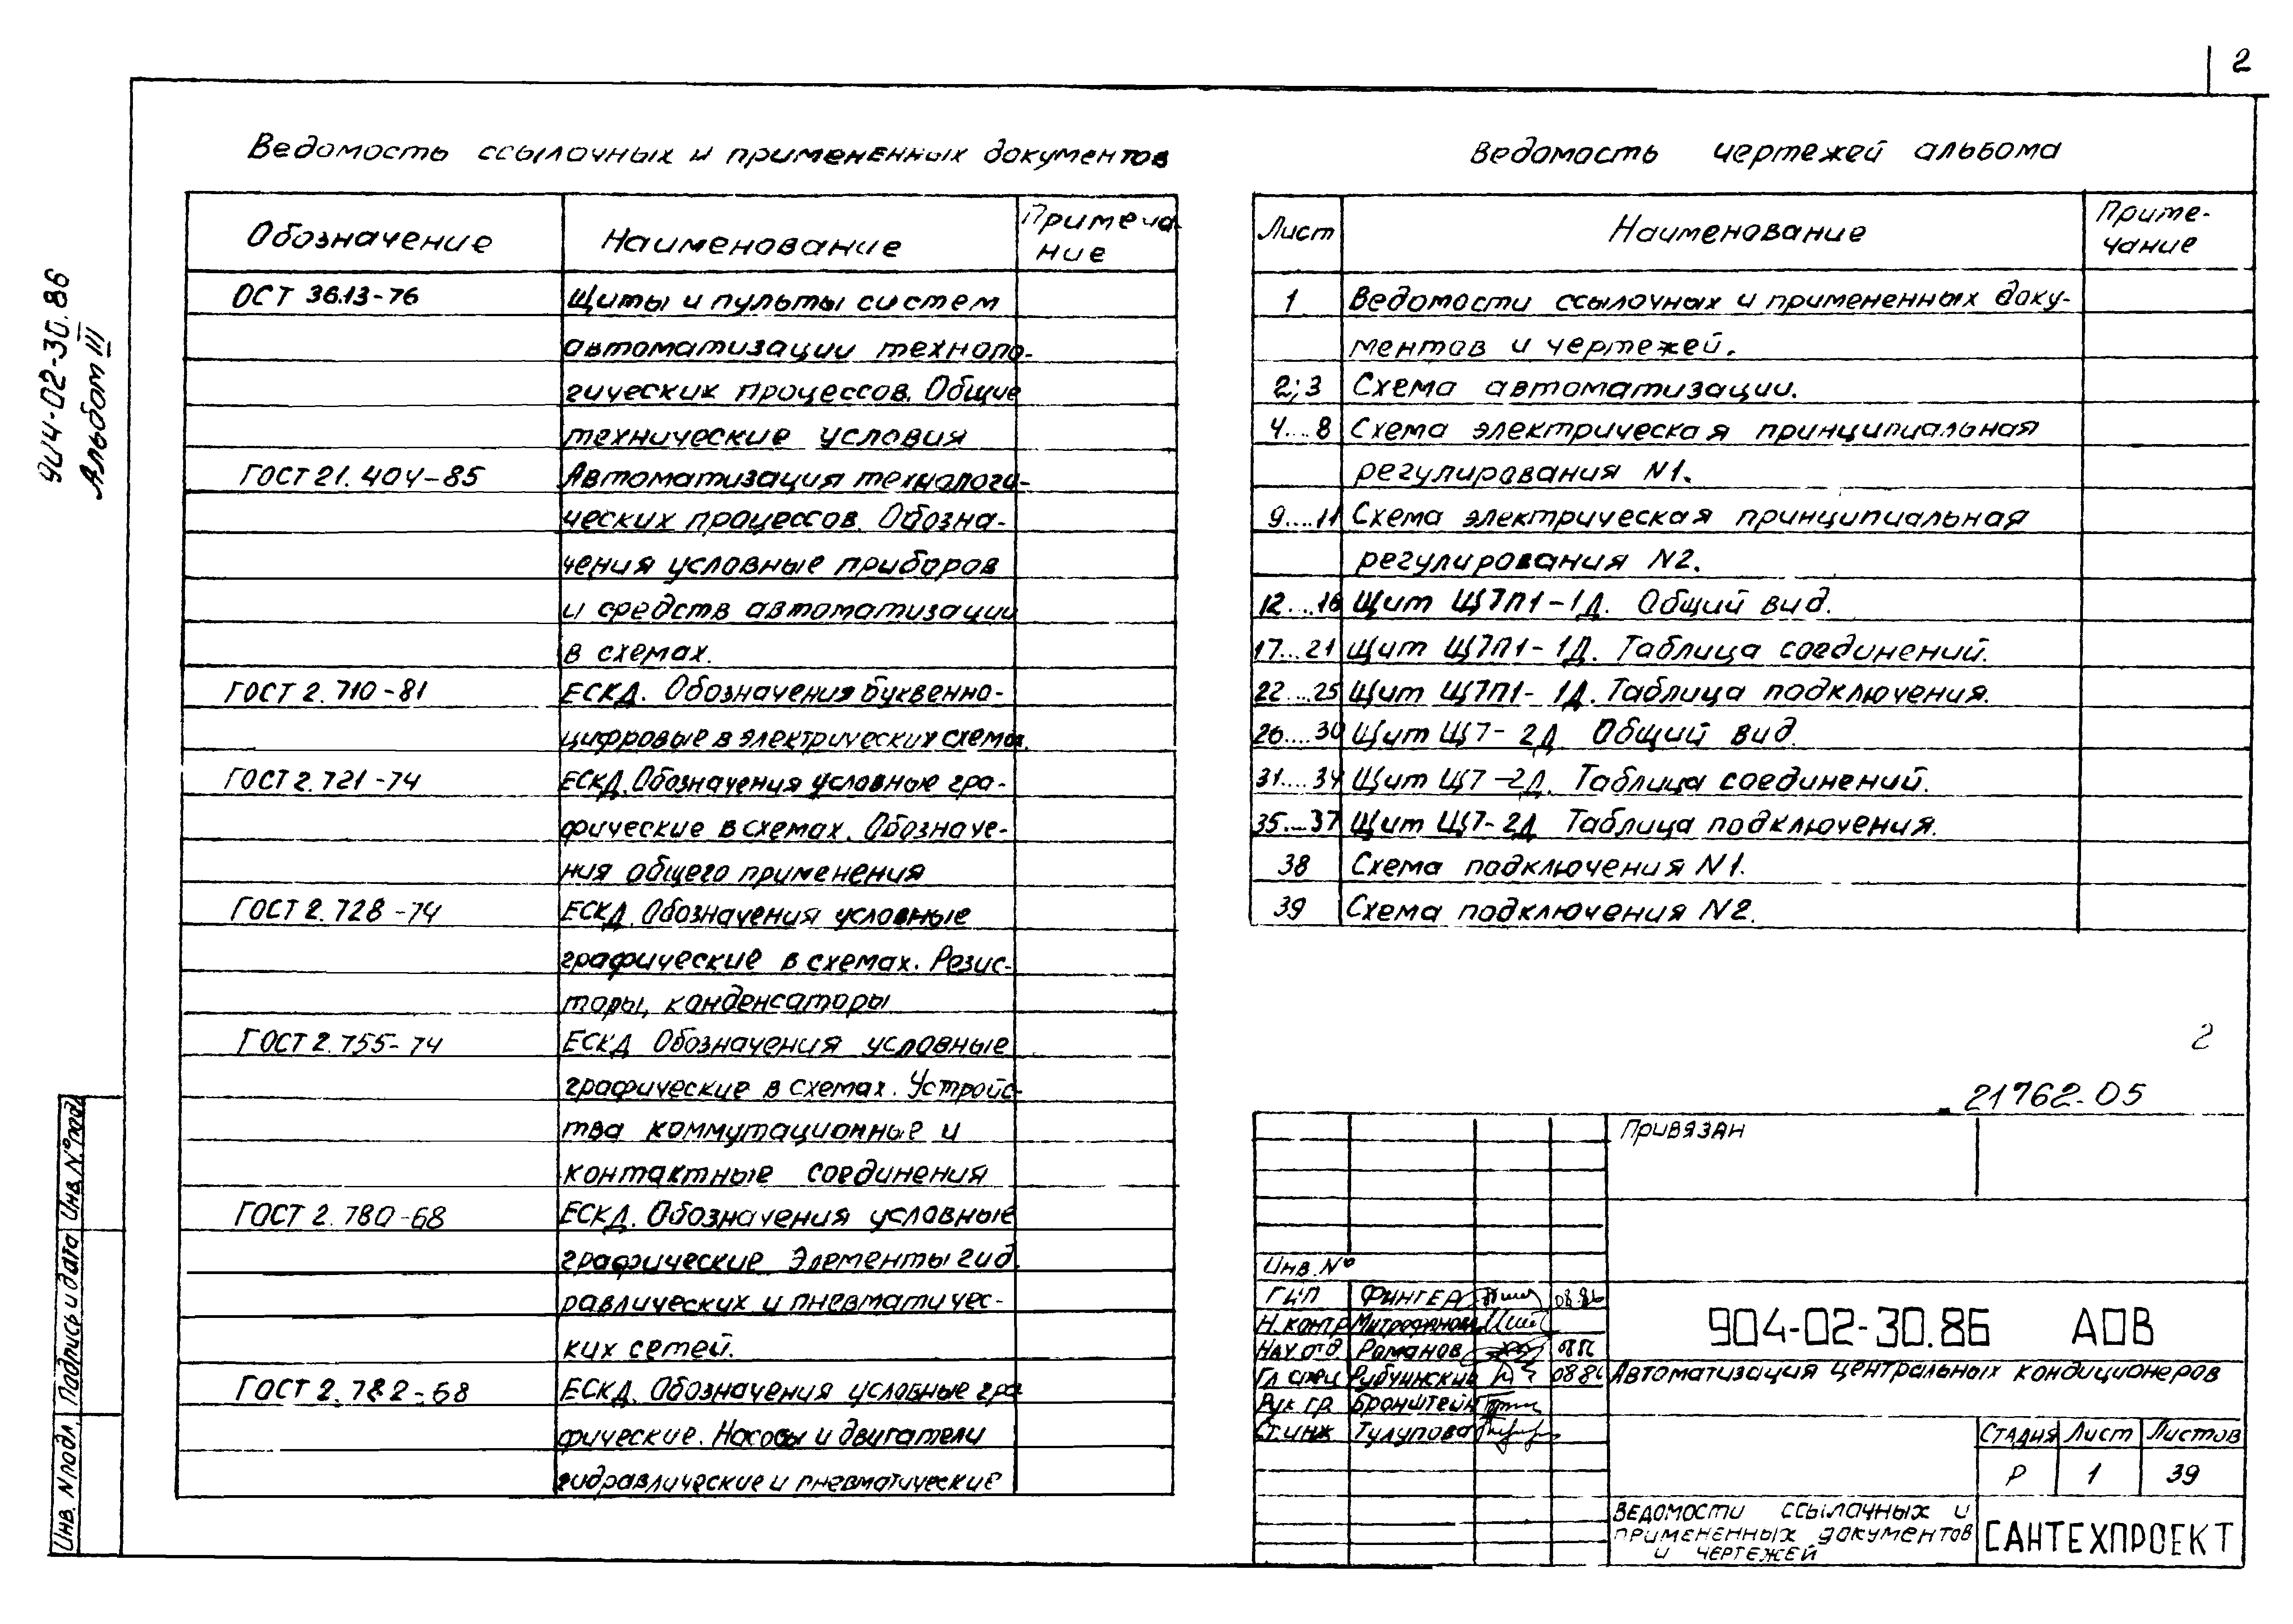 2
904-02-30.86
Альбом III
Ведомость ссылочных и примененных документов
Обозначение Наименование Примеча-
ние
ОСТ 36.13-76 Щиты и пульты систем
автоматизации техноло-
гических процессов. Общие
технические условия
ГОСТ 21.404-85 Автоматизация технологи-
ческих процессов. Обозна-
чения условные приборов
и средств автоматизации
в схемах.
ГОСТ 2.710-81 ЕСКД. Обозначения буквенно-
цифровые в электрических схемах.
ГОСТ 2.721-74 ЕСКД. Обозначения условные гра-
фические в схемах. Обозначе-
ния общего применения
ГОСТ 2.728-74 ЕСКД. Обозначения условные
графические в схемах. Резис-
торы, конденсаторы
ГОСТ 2.755-74 ЕСКД Обозначения условные
графические в схемах. Устройс-
тва коммутационные и
контактные соединения
ГОСТ 2.780-68 ЕСКД. Обозначения условные
графические Элементы гид
равлических и пневматичес-
ких сетей.
ГОСТ 2.782-68 ЕСКД. Обозначения условные гра
фические. Насосы и двигатели
гидравлические и пневматические
Ведомость чертежей альбома
Лист Наименование Приме-
чание
1 Ведомости ссылочных и примененных доку-
ментов и чертежей.
2;3 Схема автоматизации.
4...8 Схема электрическая принципиальная
регулирования N1.
9....11 Схема электрическая принципиальная
регулирования N2.
12...16 Щит Щ7П1-1Д. Общий вид.
17...21 Щит Щ7П1-1Д. Таблица соединений.
22...25 Щит Щ7П1-1Д. Таблица подключения.
26....30 Щит Щ7-2Д Общий вид.
31....34 Щит Щ7-2Д. Таблица соединений.
35...37 Щит Щ7-2Д Таблица подключения.
38 Схема подключения N1.
39 Схема подключения N2.
2
21762-05
Привязан
Инв. №
ГИП Фингер 08.86
Н.контр Митрофанова
Нач отд Романов 08.86
Гл спец Рубчинский 08.86
Рук гр. Бронштейн
Ст.инж Тулупова
904-02-30.86 АОВ
Автоматизация центральных кондиционеров
Стадия Лист Листов
Р 1 39
Ведомости ссылочных и
примененных документов
и чертежей
САНТЕХПРОЕКТ
Инв. N подл. Подпись и дата Инв. № подл